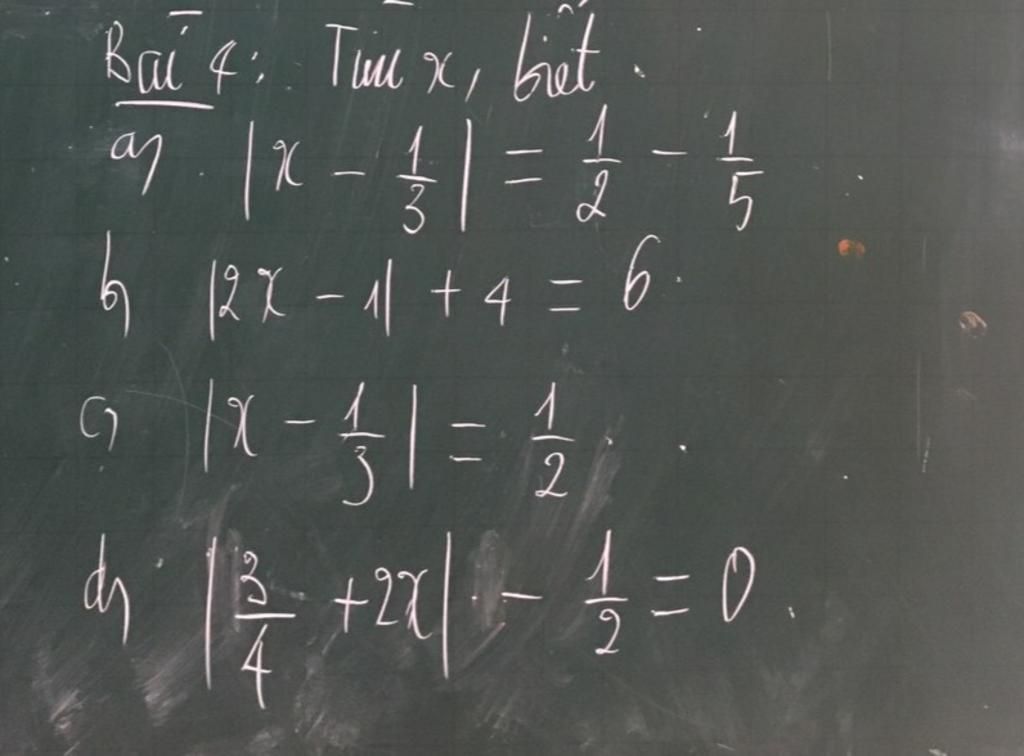 Bài 4: Tìm x, biết.
a) |x - 1/3| = 1/2 - 1/5
b) |2x - 1| + 4 = 6
c) |x - 1/3| = 1/2
d) |3/4 + 2x| - 1/2 = 0